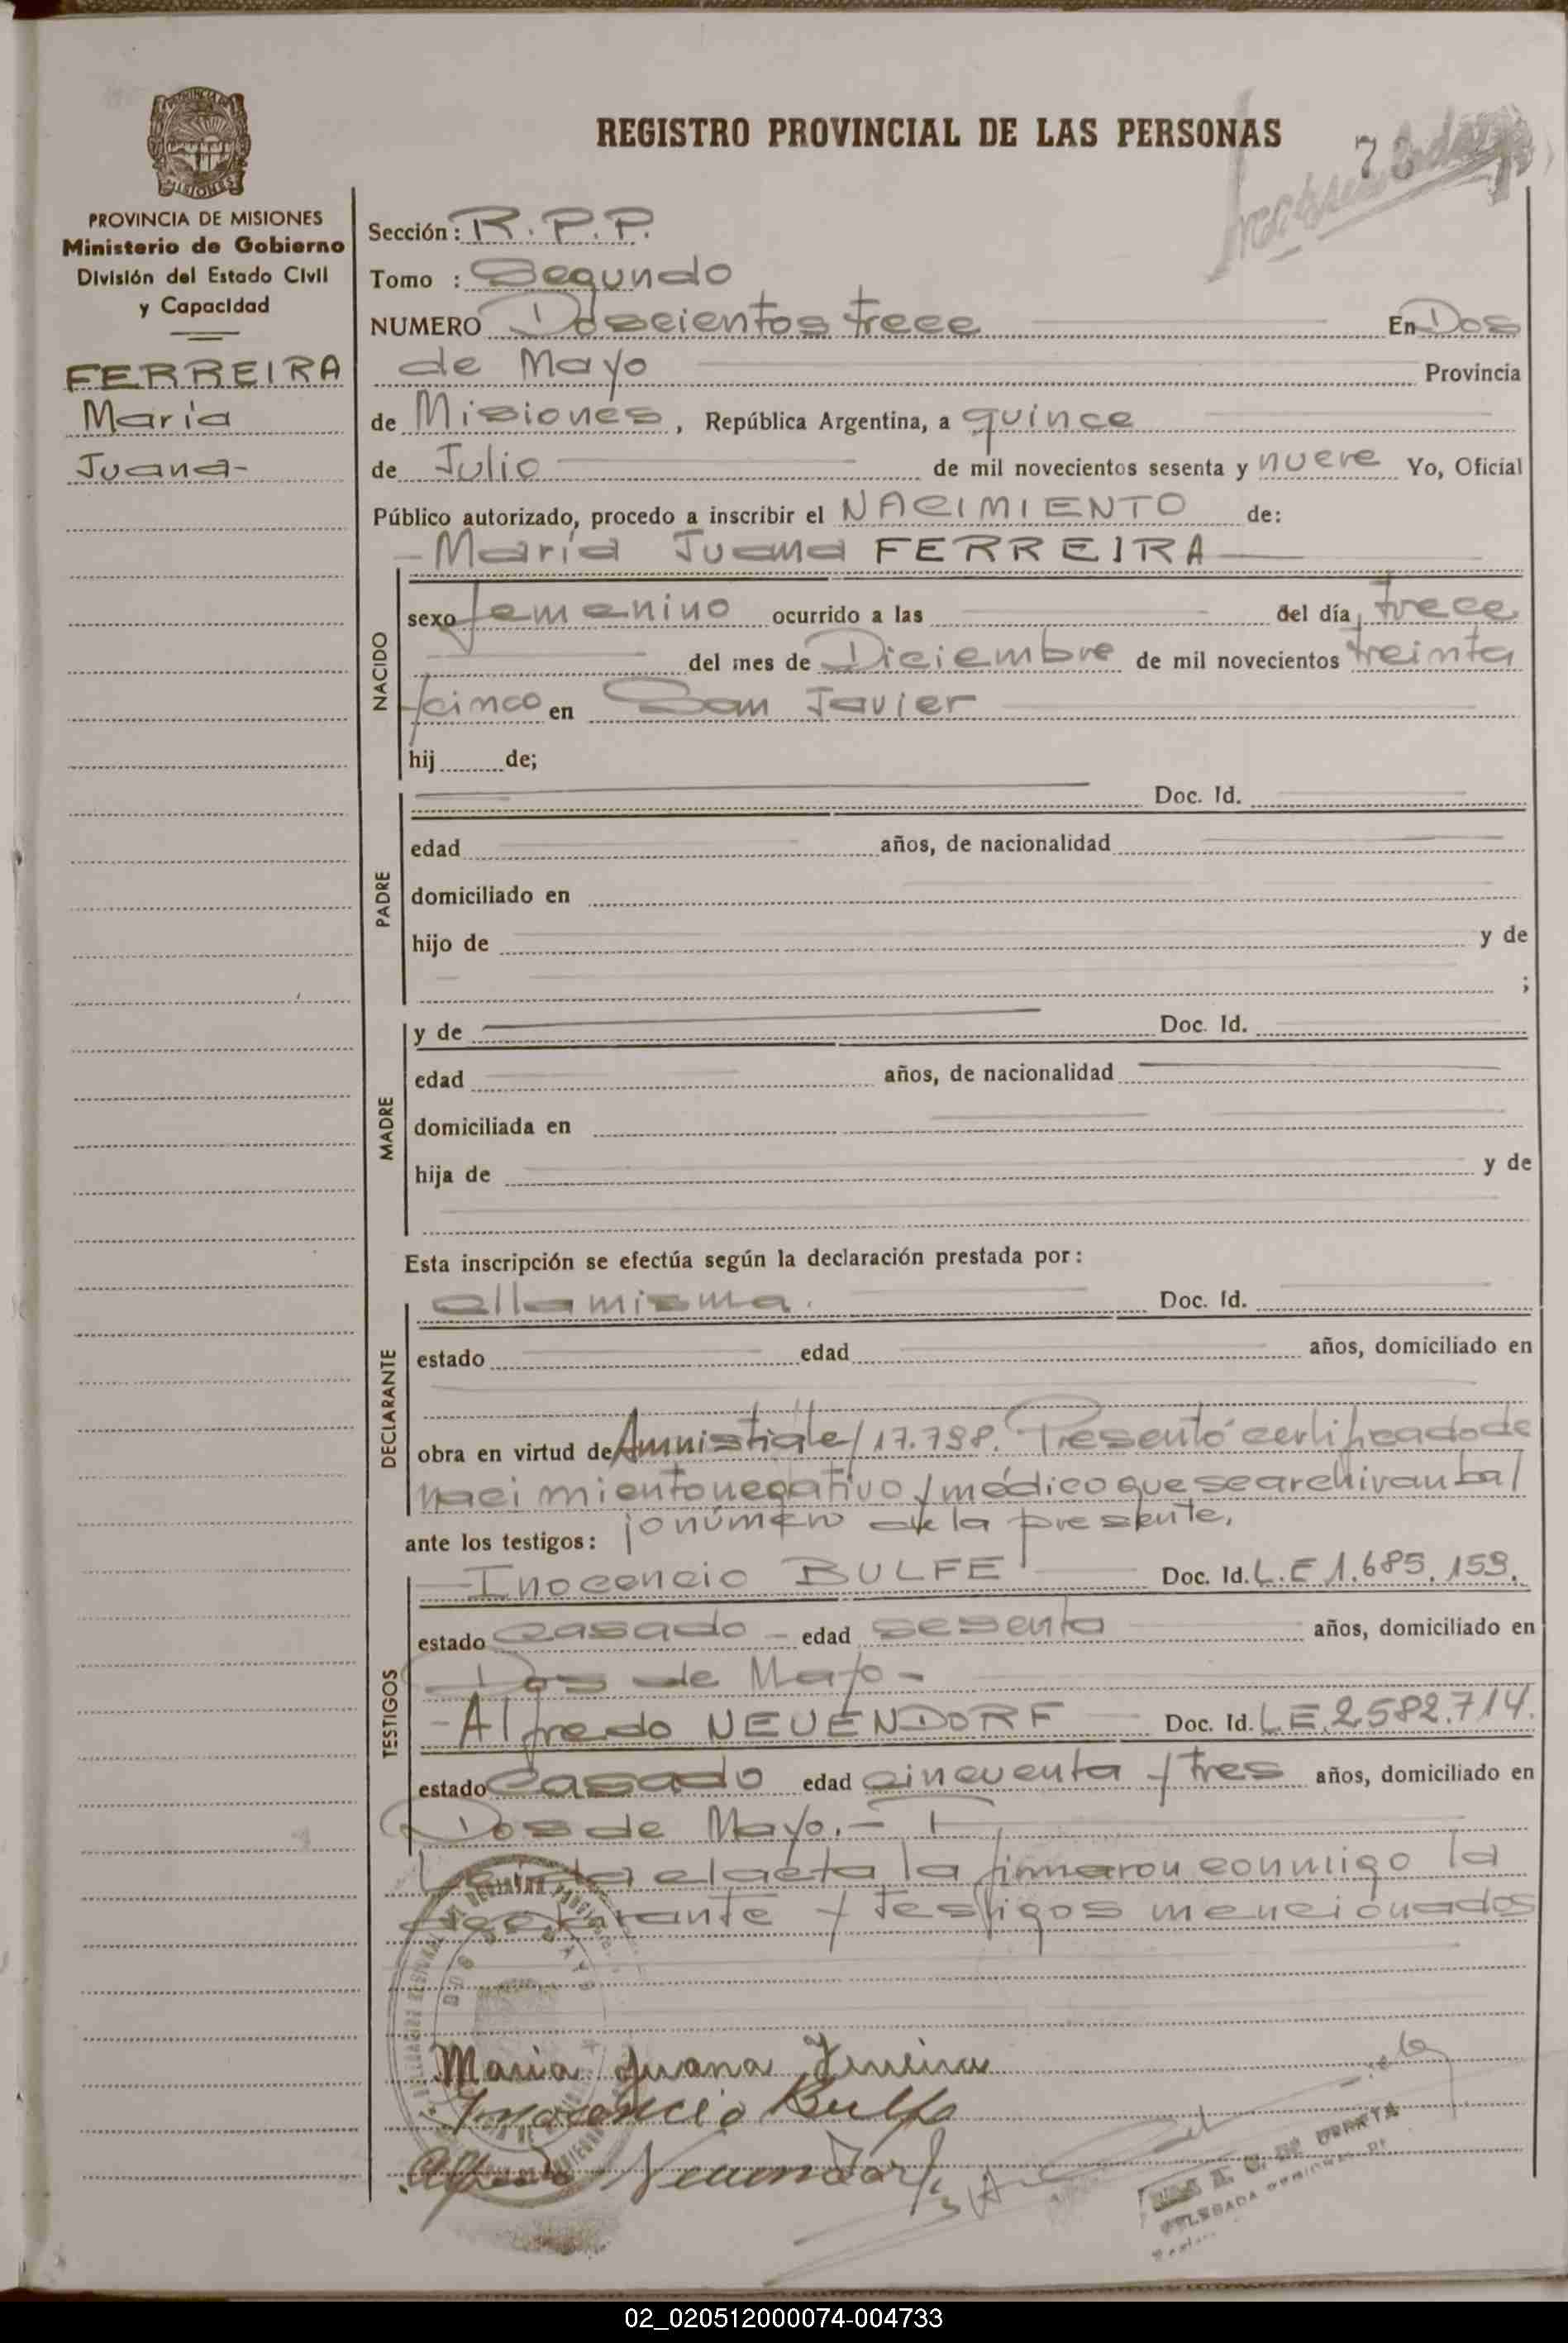 REGISTRO PROVINCIAL DE LAS PERSONAS
7
MISIONES
PROVINCIA DE MISIONES
Ministerio de Gobierno
División del Estado Civil
y Capacidad
FERREIRA
María
Juana-
Sección: R.P.P.
Tomo : Segundo
NUMERO Doscientos trece En Dos
de Mayo Provincia
de Misiones, República Argentina, a quince
de Julio de mil novecientos sesenta y nueve Yo, Oficial
Público autorizado, procedo a inscribir el NACIMIENTO de:
-María Juana FERREIRA
NACIDO
sexo femenino ocurrido a las del día trece
del mes de Diciembre de mil novecientos treinta
y cinco en San Javier
hij de;
PADRE
Doc. Id.
edad años, de nacionalidad
domiciliado en
hijo de y de
;
MADRE
y de Doc. Id.
edad años, de nacionalidad
domiciliada en
hija de y de
Esta inscripción se efectúa según la declaración prestada por:
DECLARANTE
ella misma. Doc. Id.
estado edad años, domiciliado en
obra en virtud de Amnistía le/17.798. Presentó certificado de
nacimiento negativo y médico que se archivan ba/
ante los testigos: jo número de la presente.
TESTIGOS
-Inocencio BULFE Doc. Id. L.E 1.685.159.
estado casado - edad sesenta años, domiciliado en
Dos de Mayo-
-Alfredo NEUENDORF Doc. Id. L.E.2.582.714.
estado casado edad cincuenta y tres años, domiciliado en
Dos de Mayo.-
Leída el acta la firmaron conmigo la
declarante y testigos mencionados
Maria Juana Ferreira
Inocencio Bulfe
Alfredo Neuendorf
DELEGADA
02_020512000074-004733